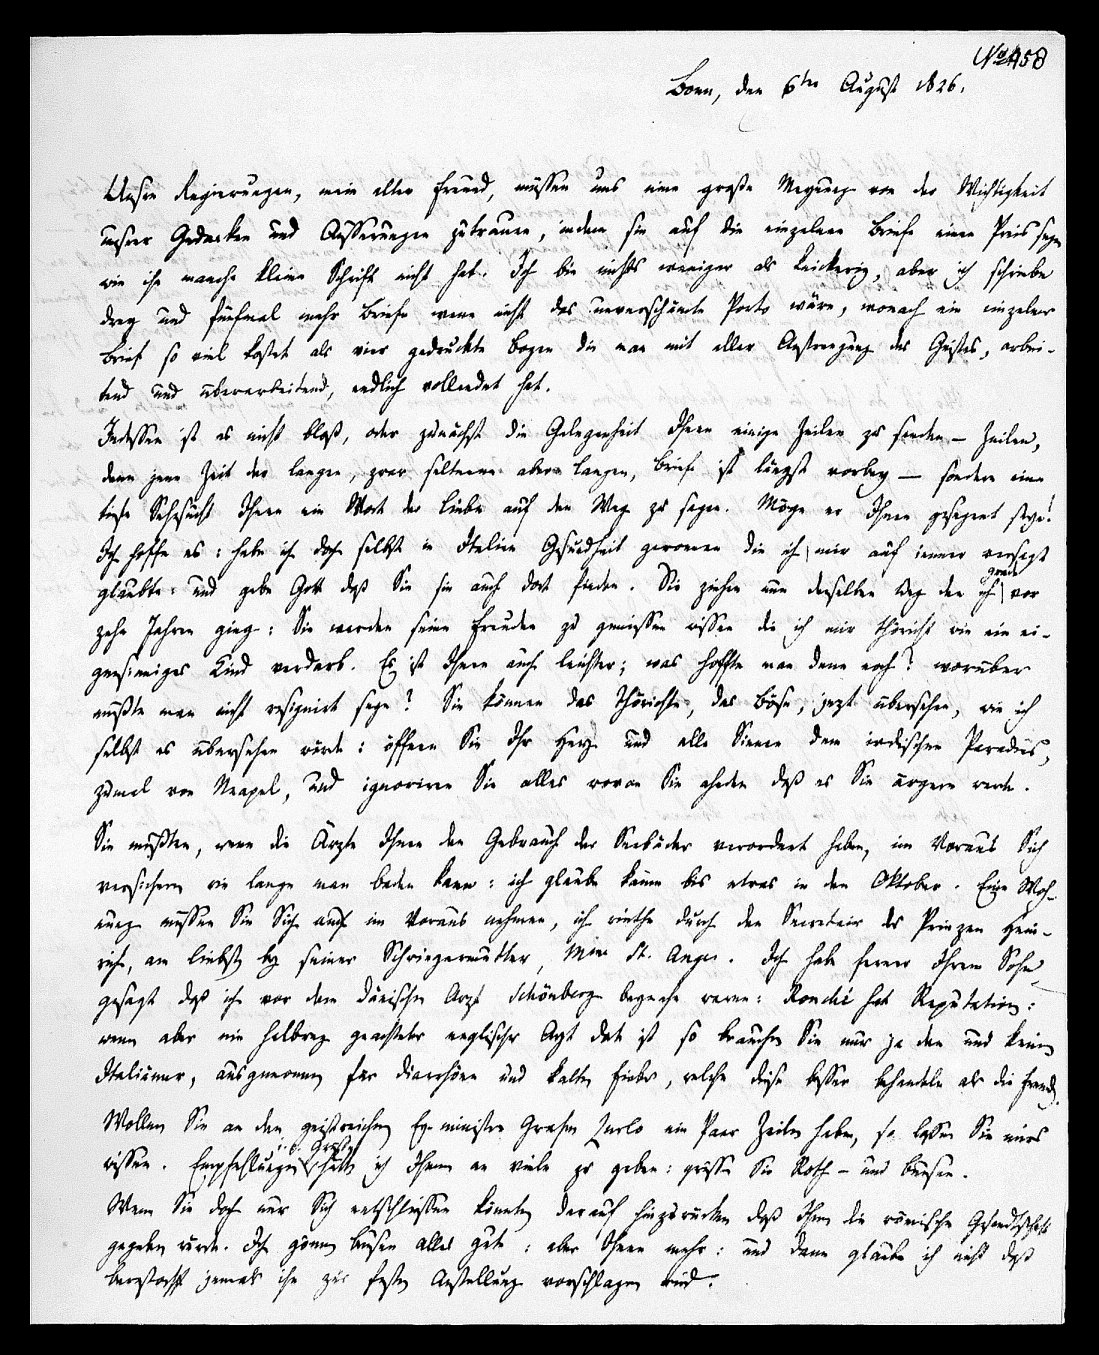 No 458
Bonn, den 6ten August 1826.
Unsre Regierungen, mein alter Freund, müssen uns eine große Meynung von der Wichtigkeit
unsrer Gedanken und Äusserungen zutrauen, indem sie auf die einzelnen Briefe einen Preis sezen
wie ihn manche kleine Schrift nicht hat. Ich bin nichts weniger als knickerig, aber ich schriebe
drey und fünfmal mehr Briefe wenn nicht das unverschämte Porto wäre, wonach ein einzelner
Brief so viel kostet als vier gedruckte Bogen die man mit aller Anstrengung des Geistes, arbei-
tend und überarbeitend, endlich vollendet hat.
Indessen ist es nicht bloß, oder zunächst die Gelegenheit Ihnen einige Zeilen zu senden — Zeilen,
denn jene Zeit der langen, zwar seltenen aber langen, Briefe ist längst vorbey — sondern eine
tiefe Sehnsucht Ihnen ein Wort der Liebe auf den Weg zu sagen. Möge er Ihnen gesegnet seyn!
Ich hoffe es: habe ich doch selbst in Italien Gesundheit gewonnen die ich mir auf immer versagt
glaubte: und gebe Gott daß Sie sie auch dort finden. Sie ziehen nun denselben Weg den ich grade vor
zehn Jahren ging: Sie werden seine Freuden zu geniessen wissen die ich mir thöricht wie ein ei-
gensinniges Kind verdarb. Es ist Ihnen auch leichter; was hoffte man denn noch? worüber
müßte man nicht resignirt seyn? Sie können das Thörichte, das Böse, jezt übersehen, wie ich
selbst es übersehen würde: öffnen Sie Ihr Herz und alle Sinnen dem irdischen Paradies,
zumal von Neapel, und ignoriren Sie alles wovon Sie ahnden daß es Sie ärgern werde.
Sie müßten, wenn die Ärzte Ihnen den Gebrauch der Seebäder verordnet haben, im Voraus Sich
versichern wie lange man baden kann: ich glaube kaum bis etwas in den Oktober. Eine Woh-
nung müssen Sie Sich auch im Voraus nehmen, ich riethe durch den Secretair des Prinzen Hein-
rich, am liebsten bey seiner Schwiegermutter, Mme St. Ange. Ich habe ferner Ihrem Sohn
gesagt daß ich vor dem dänischen Arzt Schönberg warne: Ronchi hat Reputation:
wenn aber ein halbweg geachteter englischer Arzt da ist so brauchen Sie nur ja den und keinen
Italiäner, ausgenommen für Diarrhöen und kalte Fieber, welche diese besser behandeln als die Fremden.
Wollen Sie an den geistreichen Ex-minister Grafen Zurlo ein Paar Zeilen haben, so lassen Sie mirs
wissen. Empfehlungen, i.e. Grüße hätte ich Ihnen an viele zu geben: grüssen Sie Roth – und Bunsen.
Wenn Sie doch nur Sich entschliessen könnten darauf hinzurücken daß Ihnen die römische Gesandtschaft
gegeben würde. Ich gönne Bunsen alles Gute: aber Ihnen mehr: und dann glaube ich nicht daß
Bernstorff jemals ihn zur festen Anstellung vorschlagen wird.